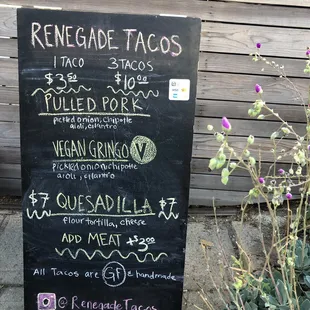 RENEGADE TACOS
1 TACO 3 TACOS
$3.50 $10.00
PULLED PORK
pickled onion, chipotle
aioli, cilantro
VEGAN GRINGO V
pickled onion, chipotle
aioli, cilantro
$7 QUESADILLA $7
flour tortilla, cheese
ADD MEAT +$3.00
All Tacos are GF & handmade
@RenegadeTacos